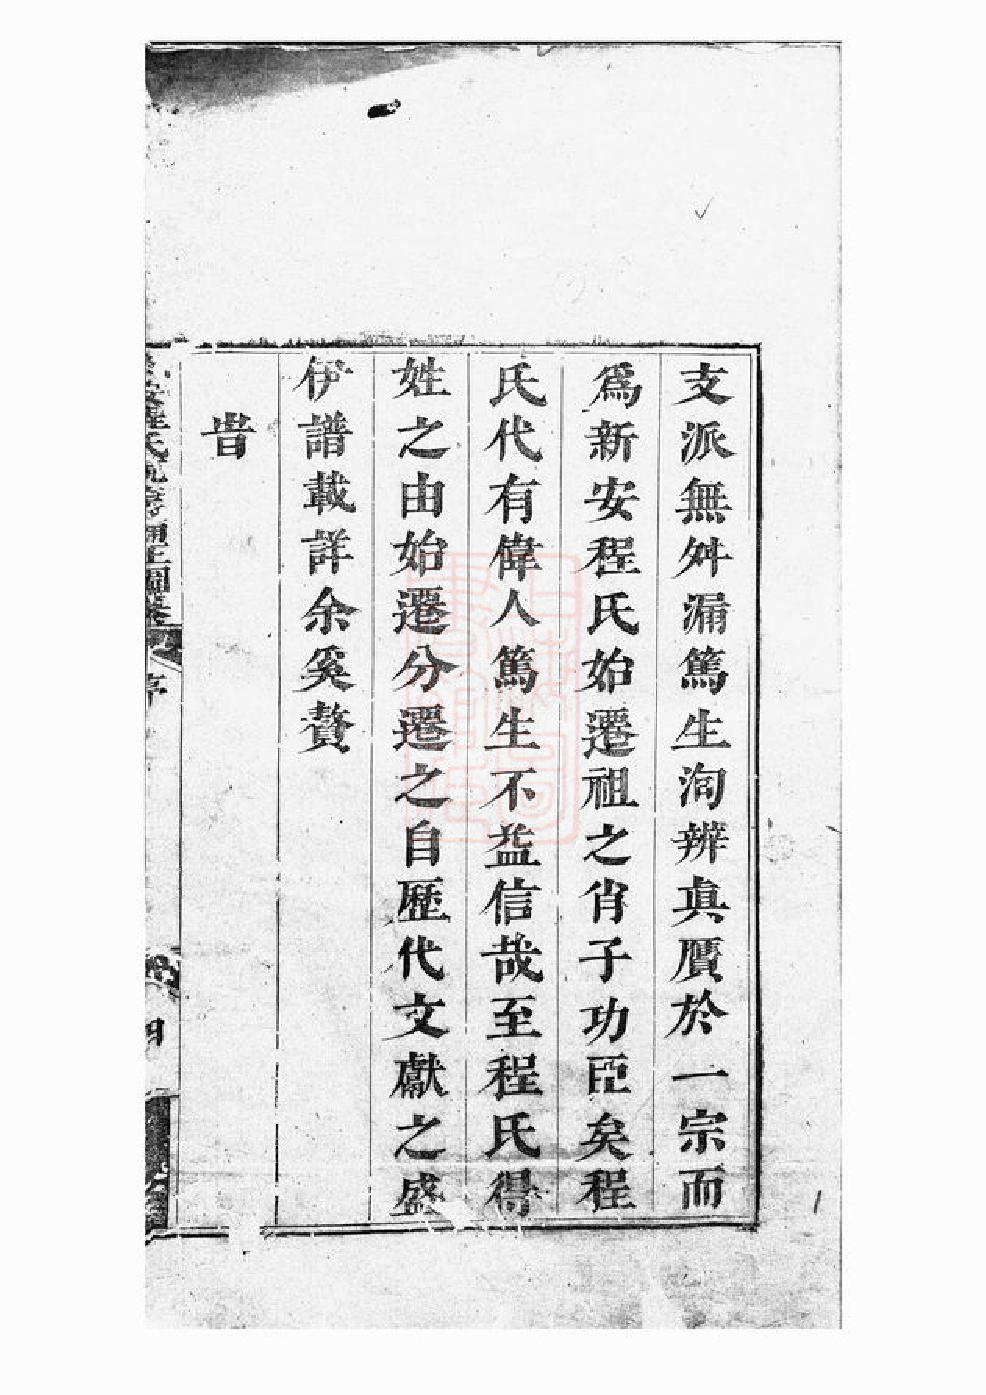 支派無舛漏篤生洵辨真贋於一宗而
爲新安程氏始遷祖之肖子功臣矣程
氏代有偉人篤生不益信哉至程氏得
姓之由始遷分遷之自歷代文獻之盛
伊譜載詳余奚贅
旹
序
四